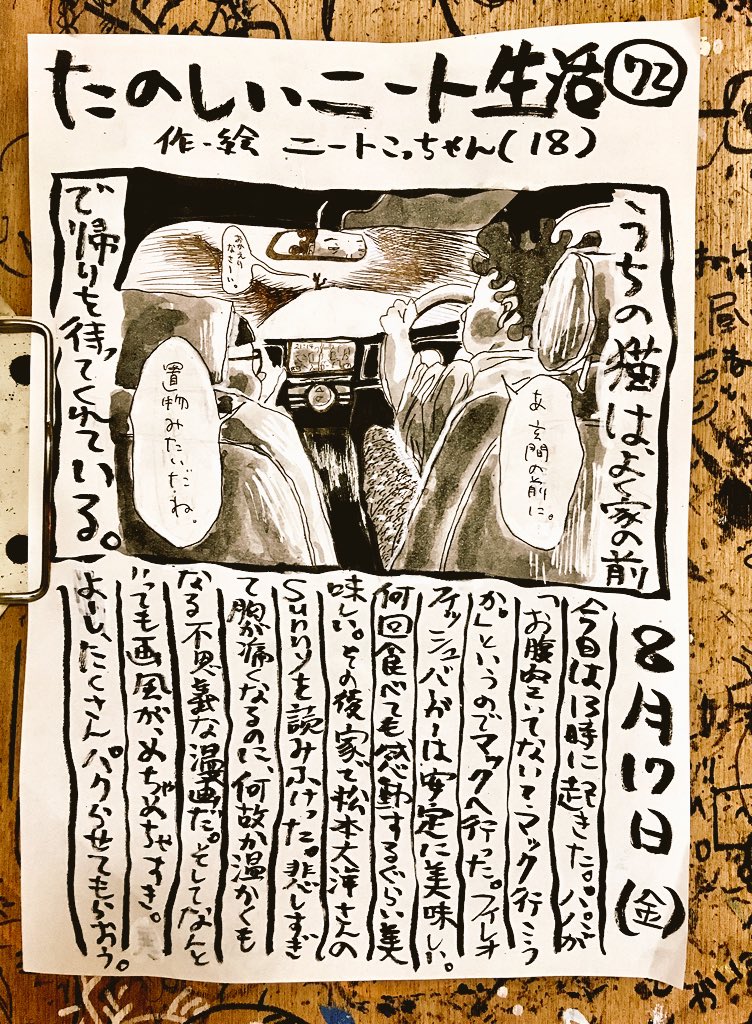 たのしいニート生活 72
作・絵 ニートこっちゃん(18)
うちの猫は、よく家の前
で帰りを待ってくれている。
あ 玄関の前に。
おかえり
なさーい。
置物みたいだね。
8月17日(金)
今日は13時に起きた。パパが
「お腹空いてないてマック行こう
か。」というのでマックへ行った。フィレオ
フィッシュバーガーは安定に美味しい。
何回食べても感動するぐらい美
味しい。その後家で松本大洋さんの
Sunnyを読みふけった。悲しすぎ
て胸が痛くなるのに、何故か温かくも
なる不思議な漫画だ。そしてなんと
いっても画風が、めちゃめちゃすき。
よーし、たくさんパクらせてもらおう。